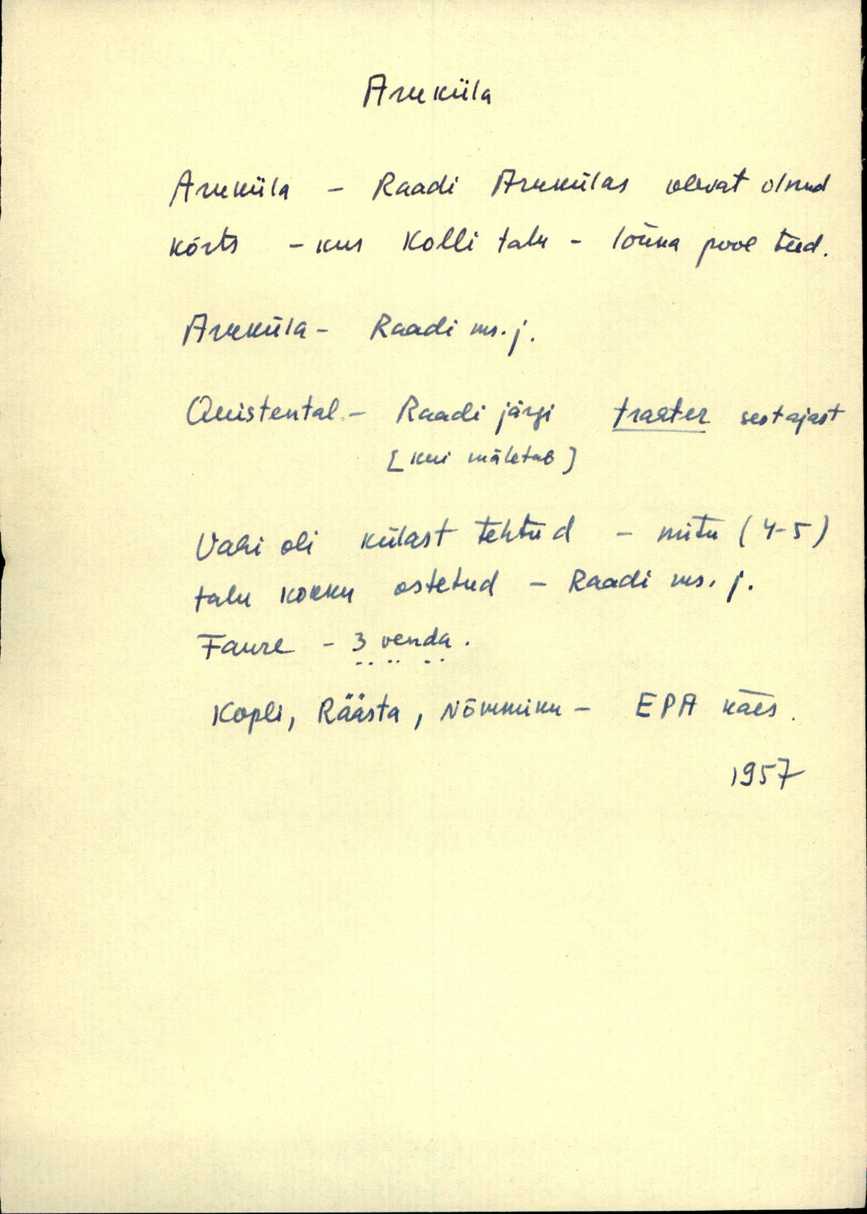 Aruküla
Aruküla – Raadi Arukülas olevat olnud
kõrts – kus Kolli talu – lõuna pool teed.
Aruküla – Raadi ms. j.
Quistental – Raadi järgi trakter seisatajast
[kui mäletab]
Vahi oli külast tehtud – mitu (4-5)
talu kokku ostetud – Raadi ms. j.
Faure – 3 venda.
Kopli, Räästa, Nõmmiku – EPA käes.
1957